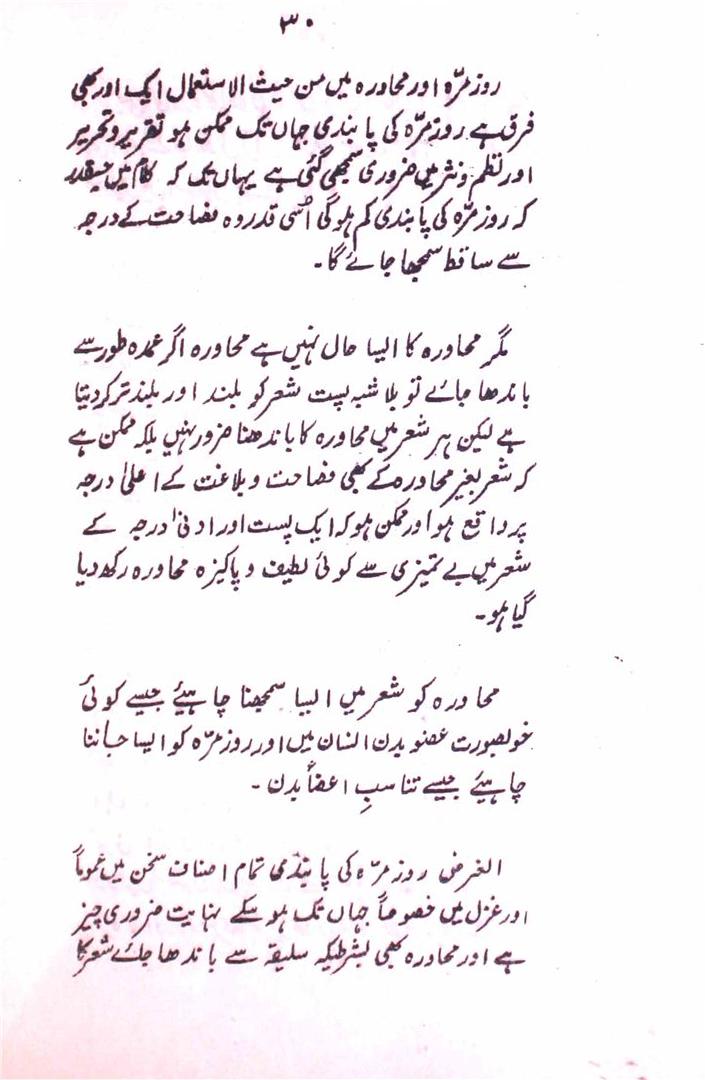 ۳۰
روزمرّہ اور محاورہ میں من حیث الاستعمال ایک اور بھی
فرق ہے روزمرّہ کی پابندی جہاں تک ممکن ہو تقریر و تحریر
اور نظم و نثر میں ضروری سمجھی گئی ہے یہاں تک کہ کلام میں جسقدر
کہ روزمرّہ کی پابندی کم ہوگی اُسی قدر وہ فصاحت کے درجہ
سے ساقط سمجھا جائے گا۔
مگر محاورہ کا ایسا حال نہیں ہے محاورہ اگر عمدہ طور سے
باندھا جائے تو بلا شبہ پست شعر کو بلند اور بلند تر کر دیتا
ہے لیکن ہر شعر میں محاورہ کا باندھنا ضرور نہیں بلکہ ممکن ہے
کہ شعر بغیر محاورہ کے بھی فصاحت و بلاغت کے اعلیٰ درجہ
پر واقع ہو اور ممکن ہو کہ ایک پست اور ادنیٰ درجہ کے
شعر میں بے تمیزی سے کوئی لطیف و پاکیزہ محاورہ رکھ دیا
گیا ہو۔
محاورہ کو شعر میں ایسا سمجھنا چاہیئے جیسے کوئی
خوبصورت عضو بدن انسان میں اور روزمرّہ کو ایسا جاننا
چاہیئے جیسے تناسبِ اعضأ بدن ۔
الغرض روزمرّہ کی پابندی تمام اصناف سخن میں عموماً
اور غزل میں خصوصاً جہاں تک ہو سکے نہایت ضروری چیز
ہے اور محاورہ بھی بشرطیکہ سلیقہ سے باندھا جائے شعر کا